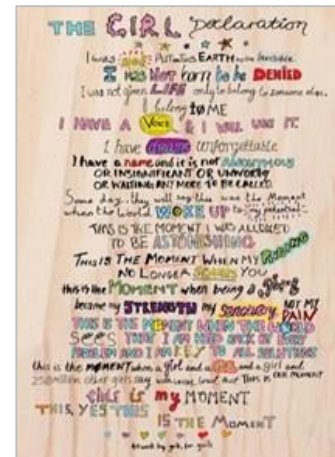 THE GIRL Declaration
I was not PUT on this EARTH to be invisible.
I was Not born to be DENIED
I was not given LIFE only to belong to someone else.
I belong to ME
I HAVE A Voice & I WILL USE IT.
I have dreams unforgettable
I have a name and it is not ANONYMOUS
OR INSIGNIFICANT OR UNWORTHY
OR WAITING ANY MORE TO BE CALLED
Some day, they will say this was the Moment
when the World WOKE UP to my potential
THIS IS THE MOMENT I WAS ALLOWED
TO BE ASTONISHING
THIS IS THE MOMENT WHEN MY RISING
NO LONGER SCARES YOU
this is the MOMENT when being a girl
became my STRENGTH my sanctuary NOT MY PAIN
THIS IS THE MOMENT WHEN THE WORLD
SEES THAT I AM HELD BACK BY EVERY
PROBLEM AND I AM KEY TO ALL SOLUTIONS
this is the MOMENT when a girl and a GIRL and a girl and
250 million other girls say with voices loud that THIS IS OUR MOMENT
this is my MOMENT
THIS, YES THIS
IS THE MOMENT
for girls